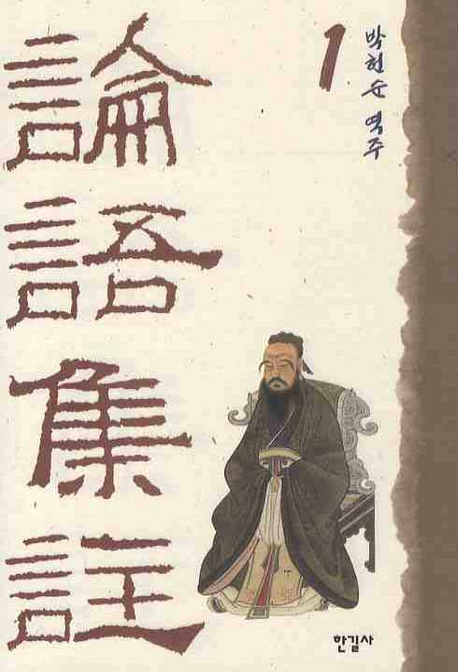 論語集註
1
박헌순 역주
한길사